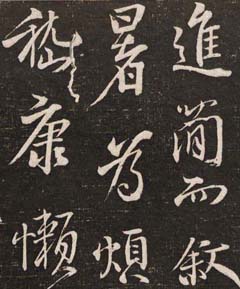 進簡而叙
暑為煩
嵇康懶